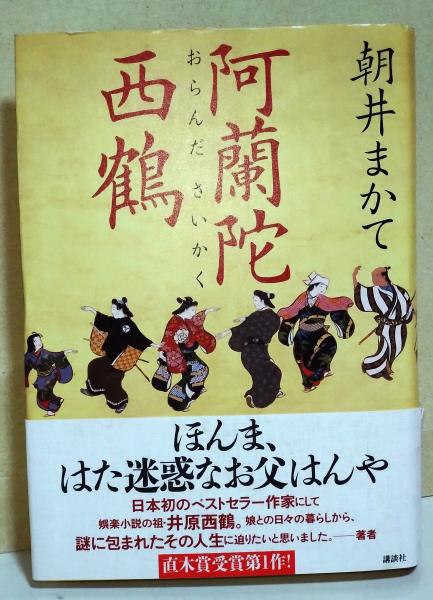 朝井まかて
阿蘭陀
西鶴
おらんださいかく
ほんま、
はた迷惑なお父はんや
日本初のベストセラー作家にして
娯楽小説の祖・井原西鶴。娘との日々の暮らしから、
謎に包まれたその人生に迫りたいと思いました。──著者
直木賞受賞第1作!
講談社